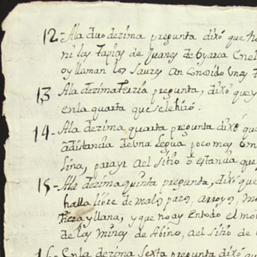 12 - Ala duodezima pregunta dixo que h
ni las tapias de Juares de
oy llaman los Sauzes
13 Ala dezimaterzia pregunta, dixo que
en la quarta que se le hizo.
14 - Ala dezima quarta pregunta dixo q
adistanzia de una legua poco mas
para yr al sitio o estanzia que
15 - Ala dezima quinta pregunta, dixo que
halla libre de malos pasos, arroyos, m
tieza y llana, y que no ay en todo el mo
de las minas de Albino, al sitio de
16 - En la dezima sexta pregunta dixo q